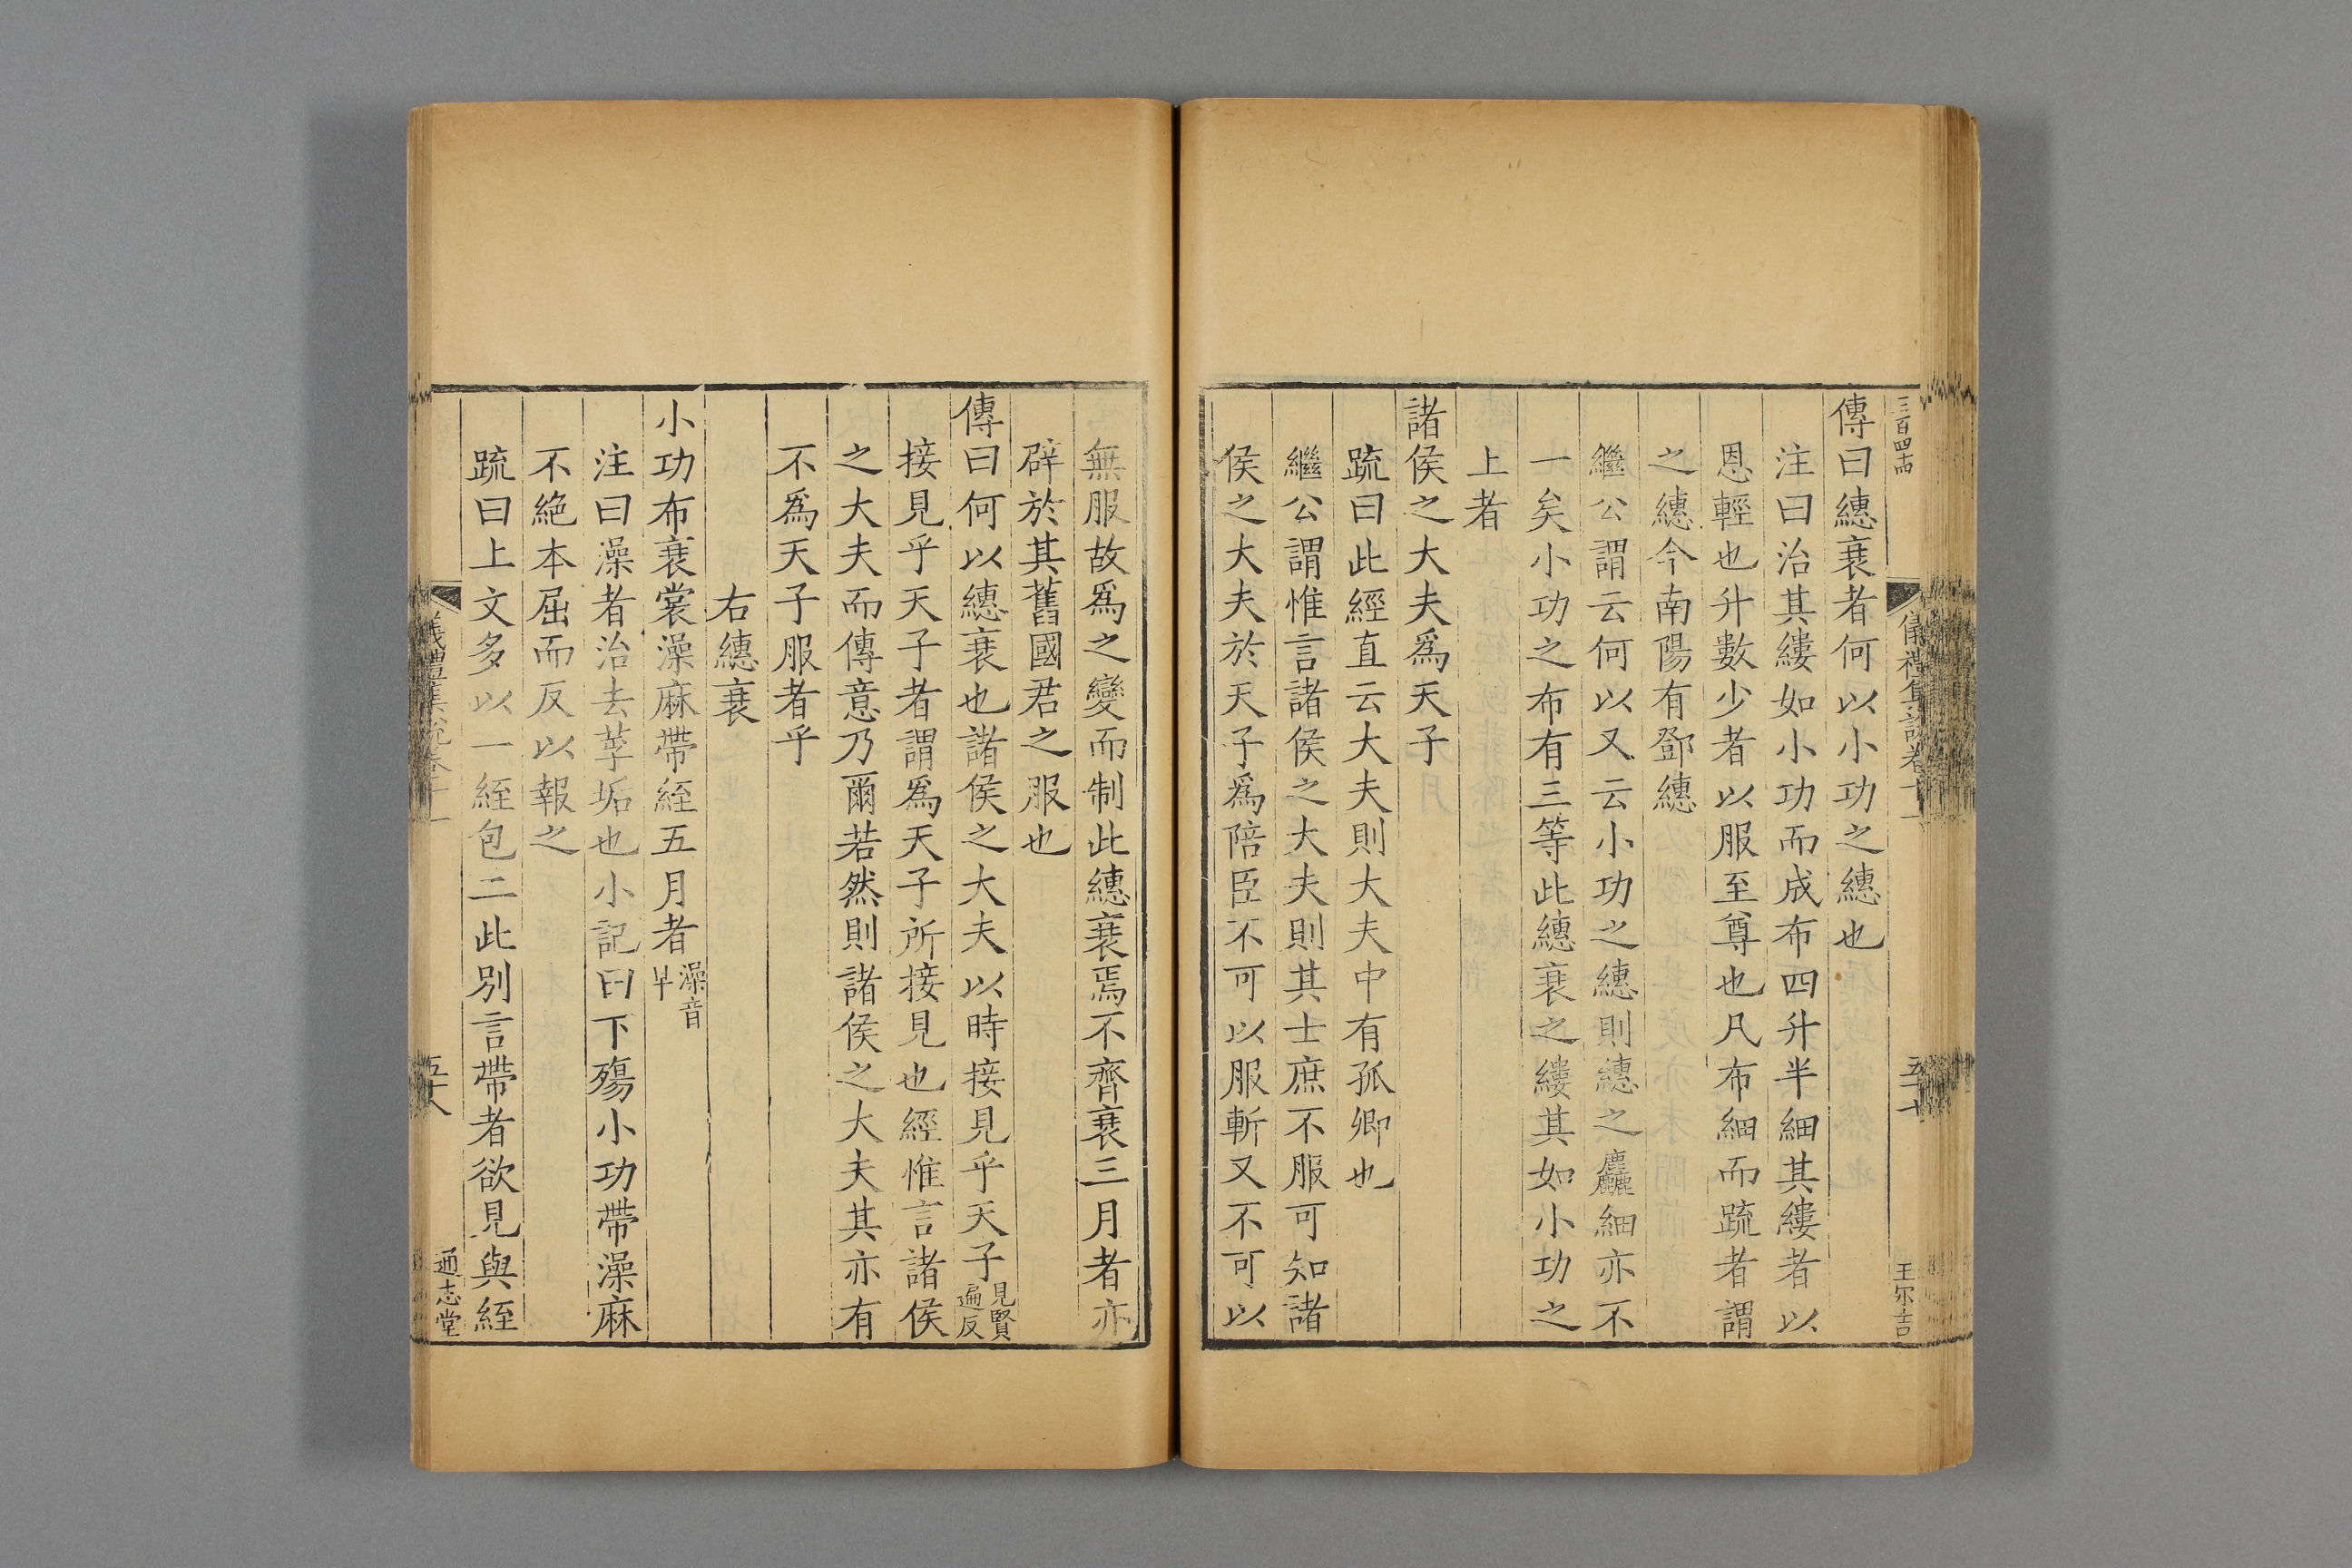 三百四十
儀禮集說卷十一
五十七
王尔吉
傳曰繐衰者何以小功之繐也
注曰治其縷如小功而成布四升半細其縷者以
恩輕也升數少者以服至尊也凡布細而疏者謂
之繐今南陽有鄧繐
繼公謂云何以又云小功之繐則繐之麤細亦不
一矣小功之布有三等此繐衰之縷其如小功之
上者
諸侯之大夫爲天子
疏曰此經直云大夫則大夫中有孤卿也
繼公謂惟言諸侯之大夫則其士庶不服可知諸
侯之大夫於天子爲陪臣不可以服斬又不可以
無服故爲之變而制此繐衰焉不齊衰三月者亦
辟於其舊國君之服也
傳曰何以繐衰也諸侯之大夫以時接見乎天子見賢遍反
接見乎天子者謂爲天子所接見也經惟言諸侯
之大夫而傳意乃爾若然則諸侯之大夫其亦有
不爲天子服者乎
右繐衰
小功布衰裳澡麻帶絰五月者澡音早
注曰澡者治去莩垢也小記曰下殤小功帶澡麻
不絶本屈而反以報之
疏曰上文多以一絰包二此別言帶者欲見與絰
儀禮集說卷十一
五十八
通志堂